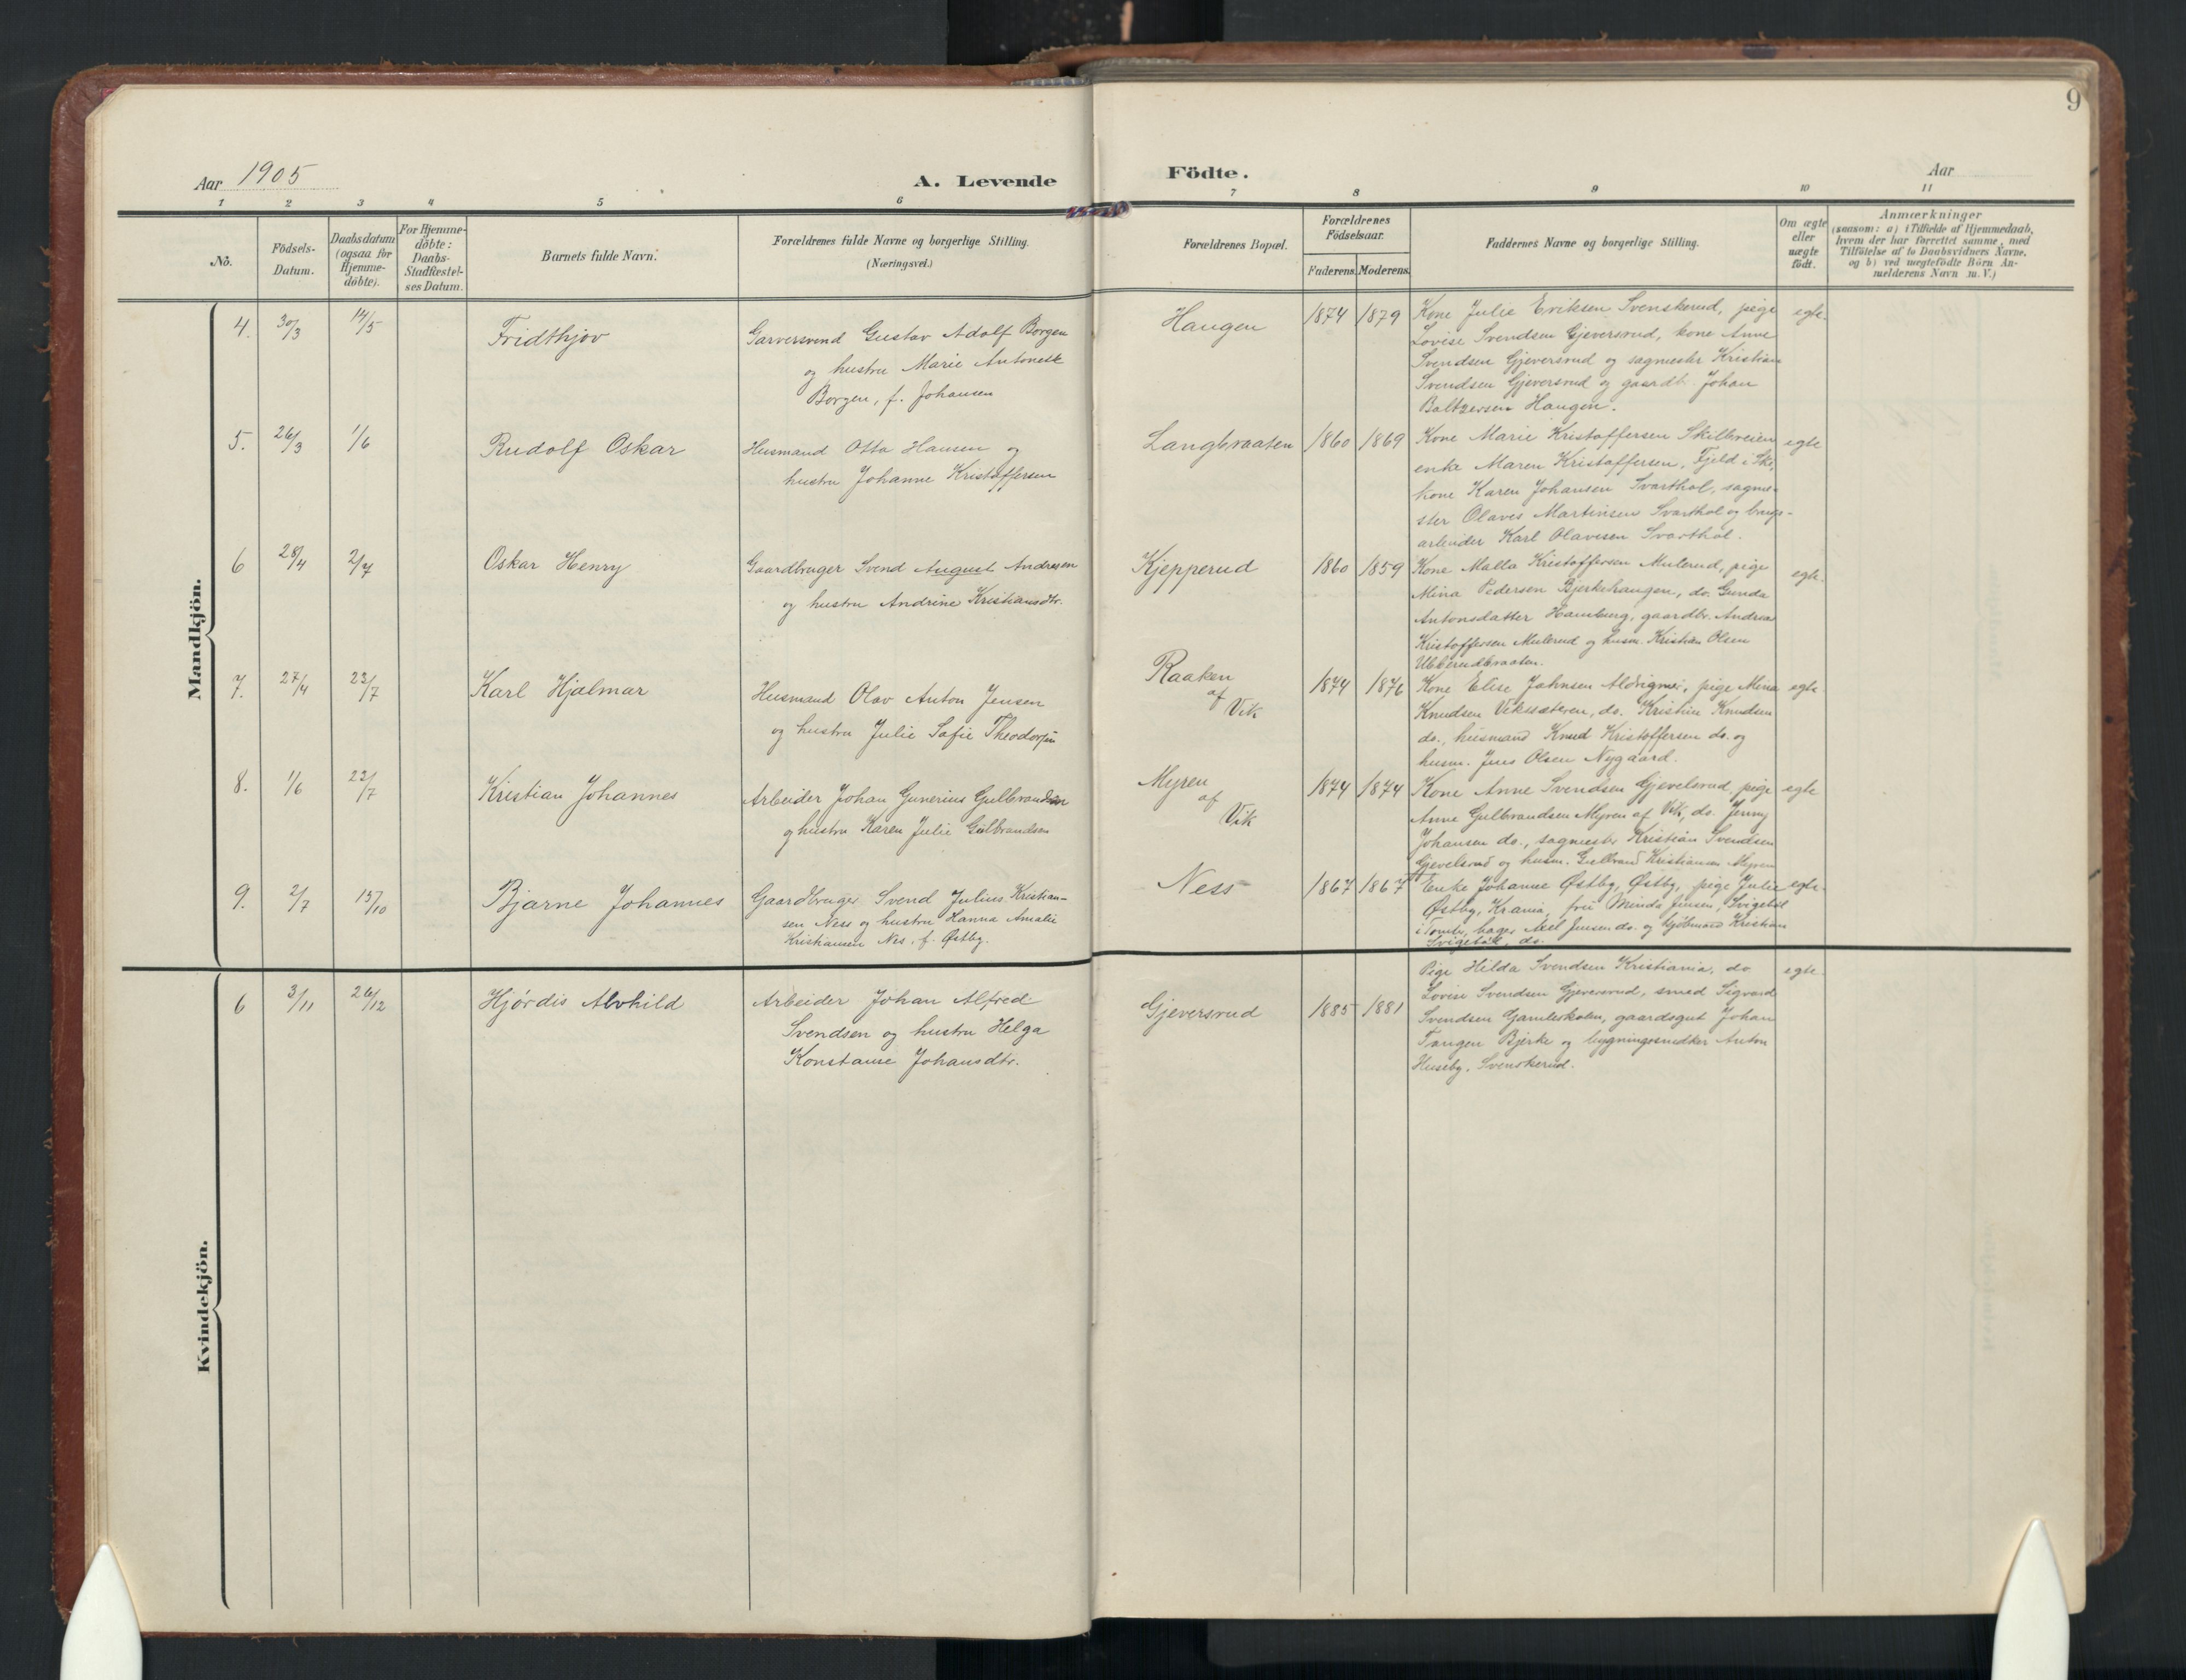 9
Aar 1905
A. Levende
Födte.
Aar
1 2 3 4 5 6 7 8 9 10 11
No.
Födsels-
Datum.
Daabsdatum
(ogsaa for
Hjemme-
döbte).
For Hjemme-
döbte:
Daabs-
Stadfæstel-
ses Datum.
Barnets fulde Navn.
Forældrenes fulde Navne og borgerlige Stilling.
(Næringsvei.)
Forældrenes Bopæl.
Forældrenes
Födselsaar.
Faderens. Moderens.
Faddernes Navne og borgerlige Stilling.
Om ægte
eller
uægte
födt.
Anmærkninger
(saasom: a) i Tilfælde af Hjemmedaab,
hvem der har forrettet samme, med
Tilföielse af to Daabsvidners Navne,
og b) ved uægtefödte Börn An-
melderens Navn m. V.)
Mandkjön.
4. 30/3 14/5 Fridthjov
Garversvend Gustav Adolf Borgen
og hustru Marie Antonette
Borgen, f. Johansen
Haugen 1874 1879
Kone Julie Eriksen Svenskerud, pige
Lovise Svendsen Gjeversrud, kone Anne
Svendsen Gjeversrud og sagmester Kristian
Svendsen Gjeversrud og gaardb. Johan
Baltzersen Haugen.
egte.
5. 26/3 1/6 Rudolf Oskar
Husmand Otto Hansen og
hustru Johanne Kristoffersen
Langbraaten 1860 1869
Kone Marie Kristoffersen Skilbreien
enke Maren Kristoffersen, Fjeld i Ski,
kone Karen Johansen Svarthol, sagme-
ster Olaves Martinsen Svarthol og brugs-
arbeider Karl Olavesen Svarthol.
egte
6 28/4 2/7 Oskar Henry
Gaardbruger Svend August Andresen
og hustru Andrine Kristiansdtr.
Kjepperud 1860 1859
Kone Malla Kristoffersen Mulerud, pige
Mina Pedersen Bjerkehaugen, do. Gunda
Antonsdatter Hamburg, gaardbr. Andreas
Kristoffersen Mulerud og husm. Kristian Olsen
Ubberudbraaten.
egte.
7. 27/4 23/7 Karl Hjalmar
Husmand Olav Anton Jensen
og hustru Julie Sofie Theodorsen
Raaken
af
Vik
1874 1876
Kone Elise Johnsen Aldrigmer, pige Mina
Knudsen Vikssæteren, do. Kristine Knudsen
do., husmand Knud Kristoffersen do. og
husm. Jens Olsen Nygaard.
egte.
8. 1/6 23/7 Kristian Johannes
Arbeider Johan Gunerius Gulbrandsen
og hustru Karen Julie Gulbrandsen
Myren
af
Vik
1874 1874
Kone Anne Svendsen Gjevelsrud, pige
Anne Gulbrandsen Myren af Vik, do. Jenny
Johansen do., sagmester Kristian Svendsen
Gjevelsrud og husm. Gulbrand Kristiansen Myren
egte
9. 2/7 15/10 Bjarne Johannes
Gaardbruger Svend Julius Kristian-
sen Ness og hustru Hanna Amalie
Kristiansen Nes, f. Østby.
Ness 1867 1867
Enke Johanne Østby, Østby, pige Julie
Østby, Krania, fru Minda Jensen, Svigebøl
bager Axel Jensen do. og Kristian
do.
egte.
Kvindekjön.
6 3/11 26/12 Hjørdis Alvhild
Arbeider Johan Alfred
Svendsen og hustru Helga
Konstanse Johansdtr.
Gjeversrud 1885 1881
Pige Hilda Svendsen Kristiania, do
Lovise Svendsen Gjeversrud, smed Sigvard
Svendsen Gamleskolen, gaardsgut Johan
Tangen Bjerke og bygningssnedker Anton
Huseby, Svenskerud.
egte.